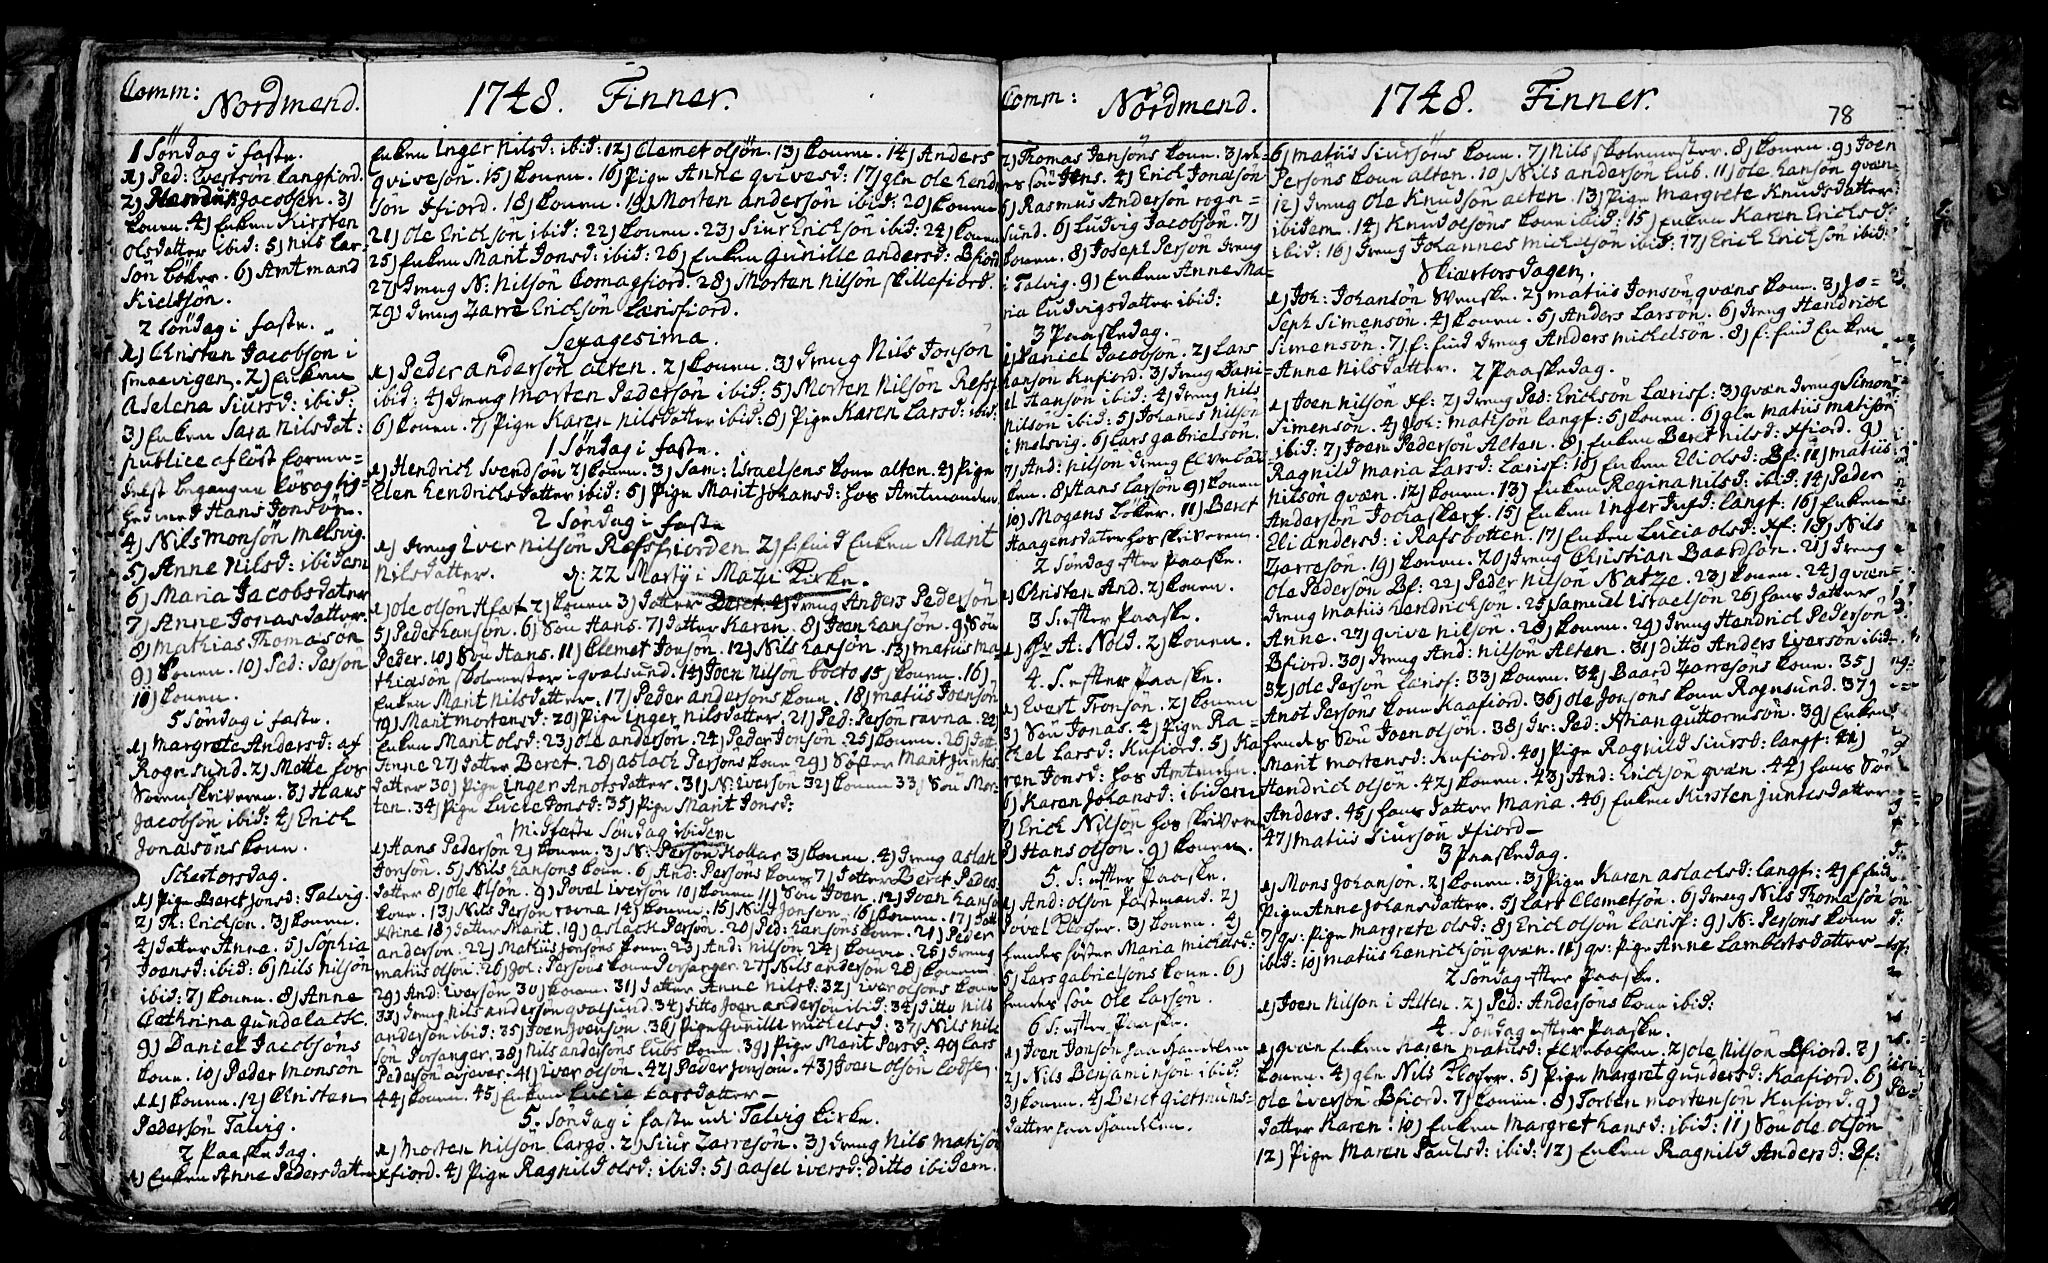 Comm:
Nordmend.
1 Söndag i faste.
1) Ped: Evertsön Langfiord.
2) Hendrik Jacobsen. 3)
konen. 4) Enken Kirsten
Olsdatter ibid: 5) Nils Lar-
sön böker. 6) Amtmand
Kieldsön.
2 Söndag i faste.
1) Christen Jacobsön i
smaevigen. 2) Enken
Aselena Siursd: ibid:
3) Enken Sara Nilsdat:
publice aflöst formed-
delst begangen Lösagtig-
hed med Hans Jonsön.
4) Nils Monsön Melsvig.
5) Anne Nilsd: ibidem
6) Maria Jacobsdatter
7) Anne Jonasdatter.
8) Mathias Thomason
9) konen. 10) Ped: Persön
11) konen.
5 Söndag i faste.
1) Margrete Andersd: af
Rognsund. 2) Mette hos
Sorenskriveren. 3) Hans
Jacobsön ibid: 4) Erick
Jonasöns konn.
Skertorsdag.
1) Pige Beret Jonsd: Talvig.
2) Th: Ericksn. 3) konen.
4) datter Anna. 5) Sophia
Joensd: ibid: 6) Nils Nilsön
ibid: 7) konen. 8) Anne
Cathrina Gundelach.
9) Daniel Jacobsöns
konn. 10) Peder Monsön
11) konen. 12) Christen
Pedersön Talvig.
2 Paaskedag.
1) Enken Anne Pedersdatter
1748. Finner.
Enken Inger Nilsd: ibid: 12) Clemet olsön. 13) konen. 14) Anders
qvivesön. 15) konen. 16) Pige Anne qvivesd: 17) gln Ole Hend
sön Xfiord. 18) konen. 19) Morten andersön ibid: 20) konen
21) Ole Ericksön ibid: 22) konen. 23) Siur Ericksön ibid: 24) konen
25) Enken Marit Jonsd: ibid: 26) Enken Gunille andersd: Bfiord
27) Dreng N: Nilsön Komagfiord. 28) Morten Nilsön skillefiord.
29) Dreng Zarre Ericksön Lærisfiord.
Sexagesima.
1) Peder andersön alten. 2) konen. 3) Dreng Nils Jonsön
ibid: 4) Dreng Morten Pedersön ibid: 5) Morten Nilsön Refsf
6) konen. 7) Pige Karen Nilsdatter ibid: 8) Pige Karen Larsd: ibid.
1 Söndag i faste.
1) Hendrick Svendsön 2) konen. 3) Sam: Israelsens konn alten. 4) Pige
Elen Hendricksdatter ibid: 5) Pige Marit Johansd: hos Amtmanden
2 Söndag i faste
1) Dreng Iver Nilsön Refsfiorden 2) Enken Marit
Nilsdatter.
d: 22 Martij i Mazi Kirke.
1) Ole olsön 2) konen 3) datter Beret. 4) Dreng Anders Pedersön
5) Peder Hansön. 6) Sön Hans. 7) datter Karen. 8) Joen Hansön. 9) Sön
Peder. 10) Sön Hans. 11) Clemet Jonsön. 12) Nils Larsön. 13) Matiis Ma-
thiason skolemester i qvalsund. 14) Joen Nilsön bocto 15) konen. 16)
Enken Marit Nilsdatter. 17) Peder andersöns konn. 18) Matiis Joensön
19) Marit mortensd: 20) Pige Inger Nilsdatter. 21) Ped: Persön ravna. 22)
Enken Marit olsd: 23) Ole andersön. 24) Peder Jonsön. 25) konen. 26) datt
Finne 27) datter Beret. 28) aslack Persöns konn 29) Söster Marit Juntes
datter 30) Pige Inger Anotsdatter. 31) N: Iversön 32) konen 33) Sön Mor-
ten. 34) Pige Lucie Jonsd: 35) Pige Marit Jonsd:
Midfaste Söndag ibidem
1) Hans Pedersön 2) konen. 3) N: Persön Kollar 3) konen. 4) Dreng aslak
Jonsön. 5) Nils Hansöns konn. 6) And: Persöns konn 7) datter Beret Peders-
datter 8) Ole Olsön. 9) Povel Iversön 10) konen 11) Sön Joen. 12) Joen Hansö
konn. 13) Nils Persön ravna 14) konen. 15) Nils Jonsön. 16) konen. 17) datt
Xstine 18) datter Marit. 19) aslack Persön. 20) Ped: Hansöns konn. 21) Peder
andersön. 22) Matiis Jonsöns konn. 23) And: Nilsön 24) konen. 25) Dreng
matiis olsön. 26) Joh: Persöns konn Porsanger. 27) Nils andersön 28) konen
29) And: Iversön 30) konen. 31) datter Anne Nilsd: 32) Iver olsöns konn
33) Dreng Nils andersön qvalsund. 34) ditto Joen andersön ibid: 34) ditto Nils
andersön ibid: 35) Joen Joensön. 36) Pige Gunille Michelsd: 37) Nils Nil-
sön Porsanger. 38) Nils andersöns Lubs konn. 39) Pige Marit Persd: 40) Lars
Pedersön avjevar. 41) Iver olsön. 42) Peder Jonsön. 43) Joen olsön Lodse.
44) konen. 45) Enken Lucie Larsdatter
5. Söndag i faste udi Talvig Kirke.
1) Morten Nilsön Largo. 2) Siur Zarresön. 3) Dreng Nils Matisön
Xfiord. 4) Pige Ragnild olsd: ibid: 5) aasel Iversd: ditto ibidem.
Comm:
Nordmend.
2) Thomas Jensöns konn. 3) de-
res sön Jens. 4) Erick Jonasön
5) Rasmus Andersön rogn=
sund. 6) Ludvig Jacobsön. 7)
konen. 8) Joseph Persön Dreng
i Talvig. 9) Enken Anne Ma=
ria Ludvigsdatter ibid:
3 Paaskedag.
1) Daniel Jacobsön. 2) Lars
Hansön Kufiord. 3) Dreng Dani=
el Hansön ibid: 4) Dreng Nils
Nilsön ibid: 5) Johanes Nilsön
i Melsvig. 6) Lars gabrielsön.
7) And: Nilsön Dreng Elvebak
ken. 8) Hans Larsön 9) konen
10) Mogens böker. 11) Beret
Haagensdatter hos skriveren.
2 Söndag efter Paaske.
1) Christen And. 2) konen.
3 S: efter Paaske.
1) Hr A: Nold. 2) konen.
4. S: efter Paaske.
1) Evert Tronsön. 2) konen
3) Sön Jonas. 4) Pige Ra=
kel Larsd: Kufiord. 5) Ka
ren Jonsd: hos Amtmden.
6) Karen Johansd: ibidem
7) Erick Nilsön hos skriveren
8) Hans olsön. 9) konen.
5. S: efter Paaske.
1) And: olsön Postmand. 2)
Povel Floger. 3) konen. 4)
hendes söster Maria Michelsd:
5) Lars gabrielsöns konn. 6)
hendes sön Ole Larsön.
6 S: efter Paaske.
1) Joen Jonsön paa Handelen
2) Nils Benjaminsön ibid:
3) konen. 4) Beret gietmuns=
datter paa Handelen.
1748. Finner.
78
6) Matiis Siursöns konn. 7) Nils skolemester. 8) konen. 9) Joen
Persöns konn alten. 10) Nils andersön Lub. 11) Ole Hansön qvæn
12) Dreng Ole Knudsön alten. 13) Pige Margrete Knudsdatter
ibidem. 14) Knud olsöns konn ibid: 15) Enken Karen Ericksd:
ibid: 16) Dreng Johannes Mickelsön ibid: 17) Erick Ericksön ibid:
Skiertorsdagen.
1) Joh: Johansön Svenske. 2) Matiis Jonsön qvæns konn. 3) Jo=
seph Simensön. 4) konen. 5) Anders Larsön. 6) Dreng Hendrick
Simensön. 7) Dreng Anders Mickelsön. 8) Enken
Anne Nilsdatter. 2 Paaskedag.
1) Joen Nilsön Xf: 2) Dreng Ped: Ericksön Lærisf: 3) qvæn Dreng Simon
Simensön. 4) Joh: Matisön Langf: 5) konen. 6) gln Matiis Matisön
ibid: 7) Joen Pedersön Alten. 8) Enken Beret Nilsd: Xfiord. 9)
Ragnild Maria Larsd: Lærisf: 10) Enken Eli olsd: Bf: 11) Matiis
Nilsön qvæn. 12) konen. 13) Enken Regina Nilsd: ibid: 14) Peder
Andersön Jockaskerf. 15) Enken Inger Langf: 16) Enken
Eli andersd: i Rafsbotten. 17) Enken Lucia olsd: Xf: 18) Nils
Zarresön. 19) konen. 20) Dreng Christian Baardsön. 21) Dreng
Ole Pedersön Bf: 22) Peder Nilsön Natze. 23) konen. 24) qvæn=
Dreng Matiis Hendricksön. 25) Samuel Israelsön 26) hans datter
Anne. 27) qvive Nilsön. 28) konen. 29) Dreng Hendrick Pedersön
Bfiord. 30) Dreng And: Nilsön Alten. 31) ditto Anders Iversön ibid
32) Ole Persön Lærisf: 33) konen. 34) Baard Zarresöns konn. 35)
Anot Persöns konn Kaafiord. 36) Ole Jonsöns konn Rognsund. 37)
hendes Sön Joen olsön. 38) Dr: Ped: Xstian Guttormsön. 39) Enken
Marit Mortensd: Kufiord. 40) Pige Ragnild Siursd: Langf: 41)
Hendrick olsön. 42) konen. 43) And: Ericksön qvæn. 44) hans Sön
Anders. 45) hans datter Maria. 46) Enken Kirsten Juntesdatter
47) Matiis Siursön Xfiord
3 Paaskedag.
1) Mons Johansön. 2) konen. 3) Pige Karen aslacksd: Langf: 4)
Pige Anne Johansdatter. 5) Lars Clemetsön. 6) Dreng Nils Thomasön
7) qv: Pige Margrete olsd: 8) Erick olsön Lærisf: 9) N: Persöns konn
ibid: 10) Matiis Henricksön qvæn. 11) qv: Pige Anne Lambertsdatter
2 Söndag efter Paaske.
1) Joen Nilsön i Alten. 2) Ped: Andersöns konn ibid:
4. Söndag efter Paaske.
1) qvæn Enken Karen Matiisd: Elvebacken. 2) Ole Nilsön Bfiord. 3)
konen. 4) gln Nils Floger. 5) Pige Margret Gundersd: Kaafiord. 6)
Ole Iversön Bfiord. 7) konen. 8) Torben Mortensön Kufiord. 9)
datter Karen. 10) Enken Margret Hansd: ibid: 11) Sön Ole olsön
12) Pige Maren Paulsd: ibid: 12) Enken Ragnild Andersd: Bf: